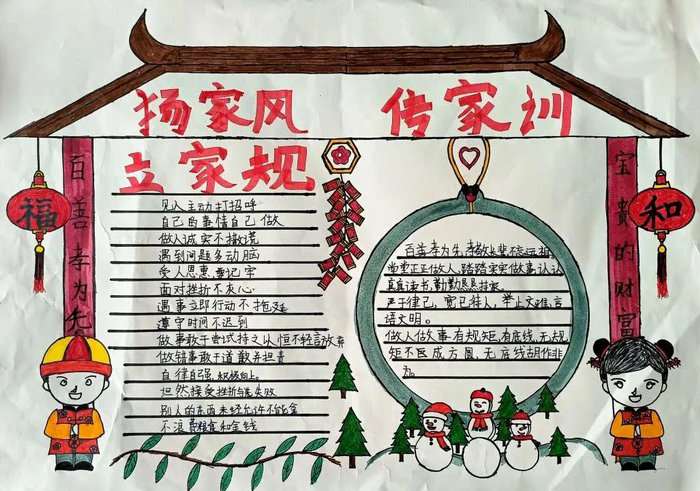 扬家风 传家训
立家规
福
和
百善孝为先
宝贵的财富
见人主动打招呼
自己的事情自己做
做人诚实不撒谎
遇到问题多动脑
受人恩惠要记牢
面对挫折不灰心
遇事立即行动不拖延
遵守时间不迟到
做事敢于尝试持之以恒不轻言放弃
做错事敢于道歉并担责
自律自强积极向上
坦然接受挫折与失败
别人的东西未经允许不能拿
不浪费粮食和金钱
百善孝为先,孝敬长辈不忘远祖
堂堂正正做人,踏踏实实做事认认
真真读书,勤勤恳恳持家.
严于律己,宽已待人,举止文雅,言
语文明。
做人做事有规矩,有底线,无规
矩不区成方圆,无底线胡作非
为。